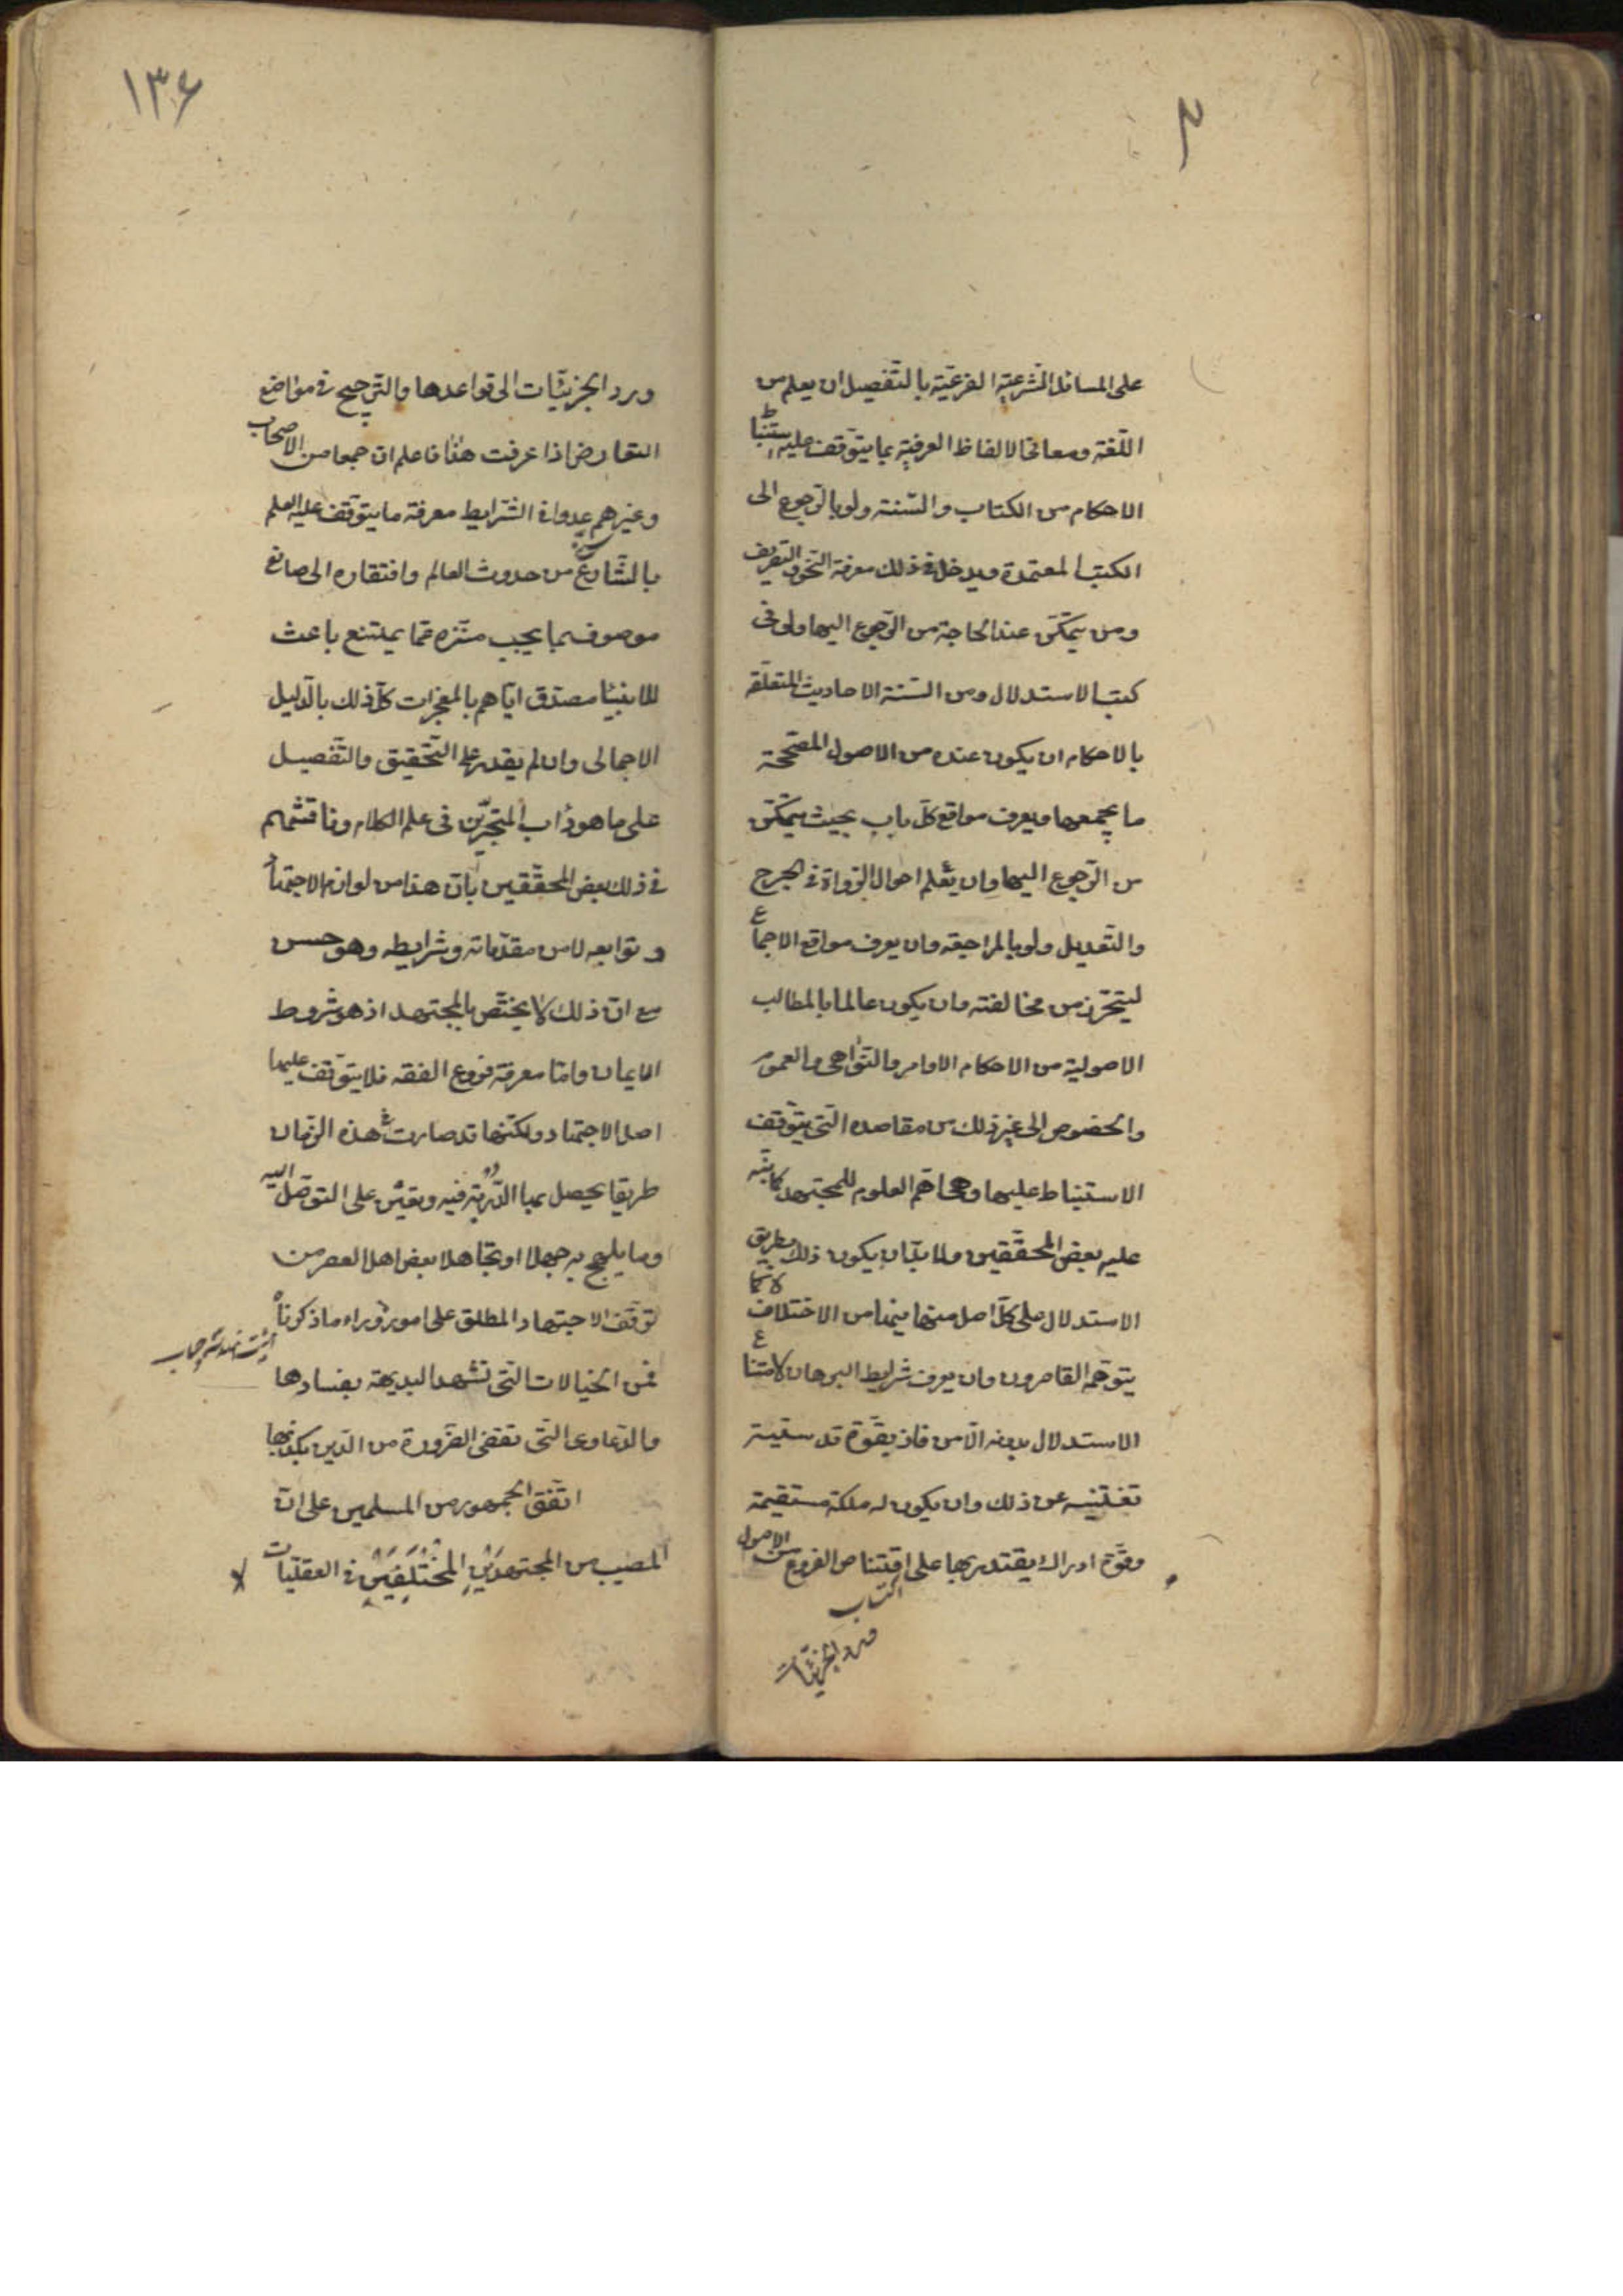 على المسائل الشرعيّة الفرعيّة بالتّفصيل ان يعلم من
اللّغة ومعانى الالفاظ العرفيّة بما يتوقّف عليه استنباط
الاحكام من الكتاب والسّنة ولو بالرّجوع الى
الكتب المعتمدة ويدخل فى ذلك معرفة النّحو والتّصريف
ومن يتمكّن عند الحاجة من الرّجوع اليها ولو فى
كتب الاستدلال ومن السّنة الاحاديث المتعلّقة
بالاحكام ان يكون عنده من الاصول المصّححة
ما يجمعها ويعرف مواقع كلّ باب بحيث يتمكّن
من الرّجوع اليها وان يعلم احوال الرّواة فى الجرح
والتّعديل ولو بالمراجعة وان يعرف مواقع الاجماع
ليتحّرز من مخالفته وان يكون عالما بالمطالب
الاصولية من الاحكام الاوامر والنّواهى والعموم
والخصوص الى غير ذلك من مقاصده الّتى يتوّقف
الاستنباط عليها وهى اهّم العلوم للمجتهد كما نبّه
عليه بعض المحقّقين ولا بدّ ان يكون ذلك بطريق
الاستدلال على كلّ اصل منها لما فيها من الاختلاف لا كما
يتوهّمه القاصرون وان يعرف شرايط البرهان لامتناع
الاستدلال بدونه الّا من فاز بقّوة قدسيّة
تغنيه عن ذلك وان يكون له ملكة مستقيمة
وقّوة ادراك يقتدر بها على اقتناص الفروع من الاصول
ورد الجزئيّات
١٣۶
ورد الجزئيّات الى قواعدها والتّرجيح فى مواضع
التعارض اذا عرفت هذا فاعلم ان جمعا من الاصحاب
وغيرهم عدوا فى الشّرايط معرفة ما يتوقّف عليه العلم
بالشّارع من حدوث العالم وافتقاره الى صانع
موصوف بما يجب منزّه عمّا يمتنع باعث
للانبيا مصدّق ايّاهم بالمعجزات كلّ ذلك بالّدليل
الاجمالى وان لم يقدر على التّحقيق والتّفصيل
على ما هو دأب المتبحّرين فى علم الكلام وناقشهم
فى ذلك بعض المحقّقين بأنّ هذا من لوازم الاجتهاد
وتوابعه لا من مقدّماته وشرايطه وهو حسن
مع انّ ذلك لا يختّص بالمجتهد اذ هو شروط
الايمان وامّا معرفة فروع الفقه فلا يتوقّف عليها
اصل الاجتهاد ولكنّها قد صارت فى هذه الزّمان
طريقا يحصل بها الدّربة فيه ويعين على التوصّل اليه
وما يلهج به جهلا او تجاهلا بعض اهل العصر من
توقّف الاجتهاد المطلق على امور وراء ما ذكرناه
فمن الخيالات الّتى تشهد البديهة بفسادها
والدّعاوى الّتى تقضى الضّرورة من الدّين بكذبها
اتّفق الجمهور من المسلمين على انّ
المصيب من المجتهدَيْنِ المختلِفَيْنِ فى العقليّات